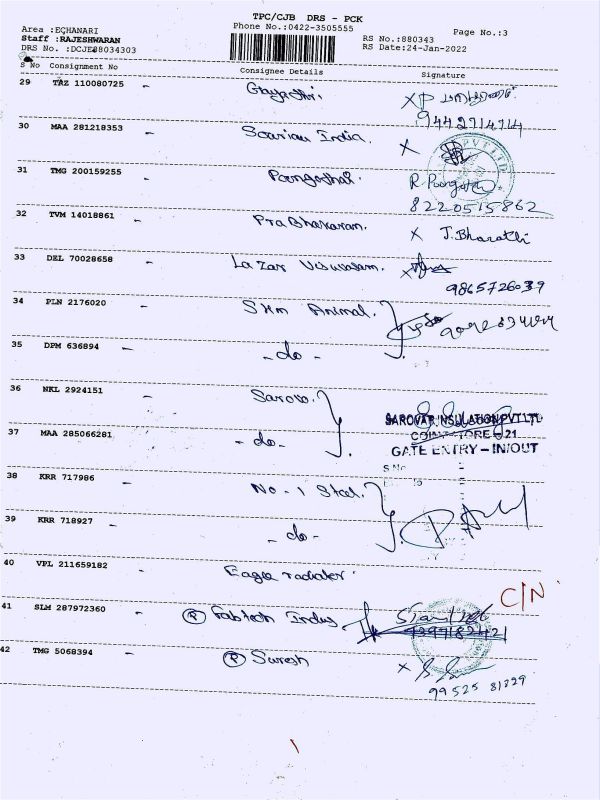 TPC/CJB DRS - PCK
Area :EQHANARI
Phone No.:0422-3505555
Page No.:3
Staff :RAJESHWARAN
RS No.:880343
DRS No. :DCJE88034303
RS Date:24-Jan-2022
S No Consignment No Consignee Details Signature
29 TAZ 110080725 - Gayathri.
9442714714
30 MAA 281218353 - India. X
PVT LTD
31 TMG 200159255 Poongothai. R Poongothai
8220515862
32 TVM 14018861 - Prabhakaram. X J.Bharathi
33 DEL 70028658 - Lazar Visuvasam. X
9865726039
34 PLN 2176020 - SKM Animal.
35 DPM 636894 - - do -
36 NKL 2924151 - Sarovo.
SAROVAR INSULATION PVT LTD
COIMBATORE - 21
37 MAA 285066281 - do -
GATE ENTRY - IN/OUT
S No
38 KRR 717986 - No - 1 Steel.
39 KRR 718927 - - do -
40 VPL 211659182 - Eagle radiator.
C/N
41 SLM 287972360 - (P) Fabtech Indus
42 TMG 5068394 - (P) Suresh X
99525 81329